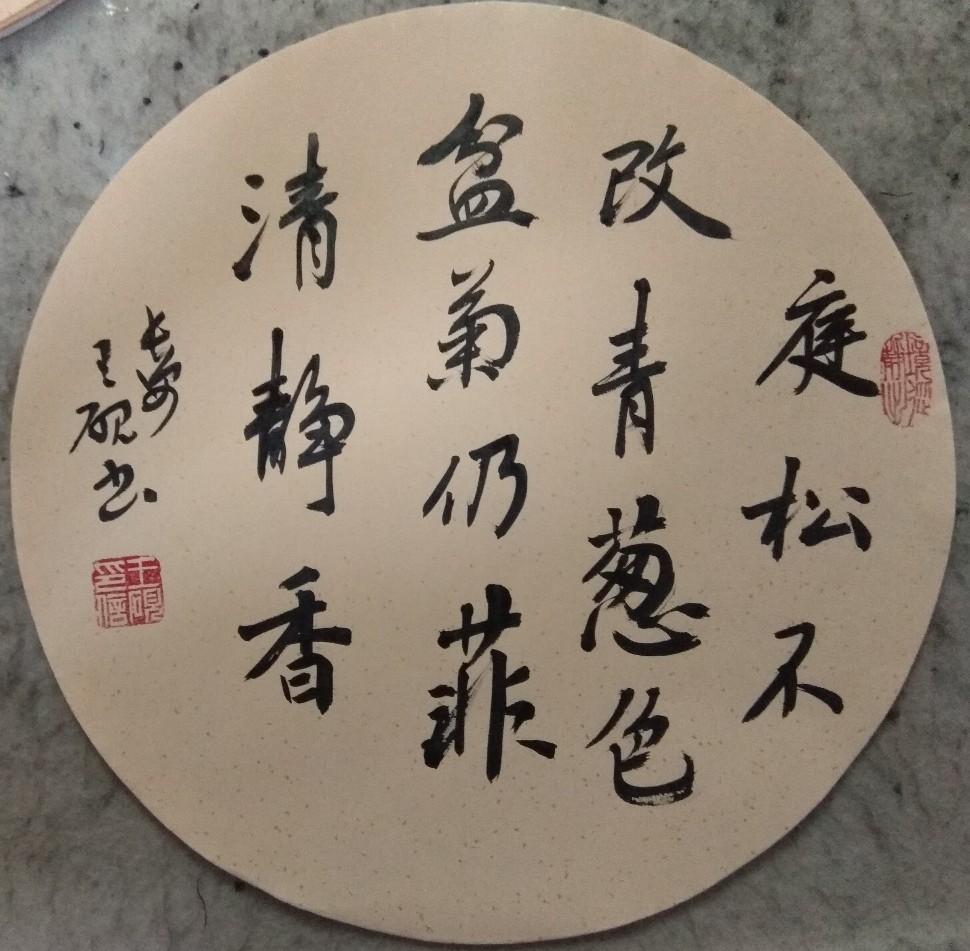 庭松不
改青葱色
盆菊仍菲
清静香
长安
王砚书
王砚印信